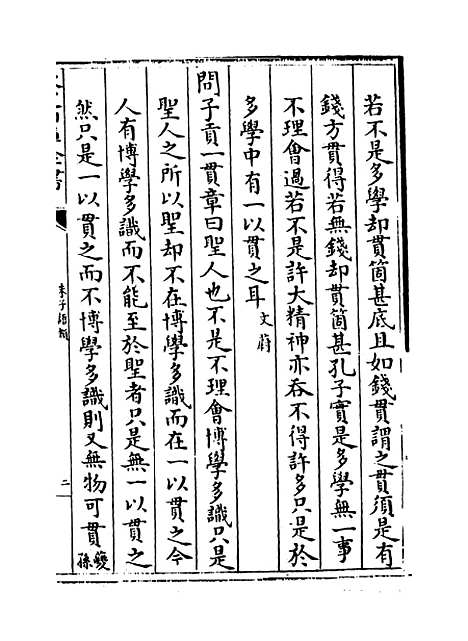 若不是多學却貫箇甚底且如錢貫謂之貫須是有
錢方貫得若無錢却貫箇甚孔子實是多學無一事
不理會過若不是許大精神亦吞不得許多只是於
多學中有一以貫之耳文蔚
問子貢一貫章曰聖人也不是不理會博學多識只是
聖人之所以聖却不在博學多識而在一以貫之今
人有博學多識而不能至於聖者只是無一以貫之
然只是一以貫之而不博學多識則又無物可貫夔孫
朱子語類
二